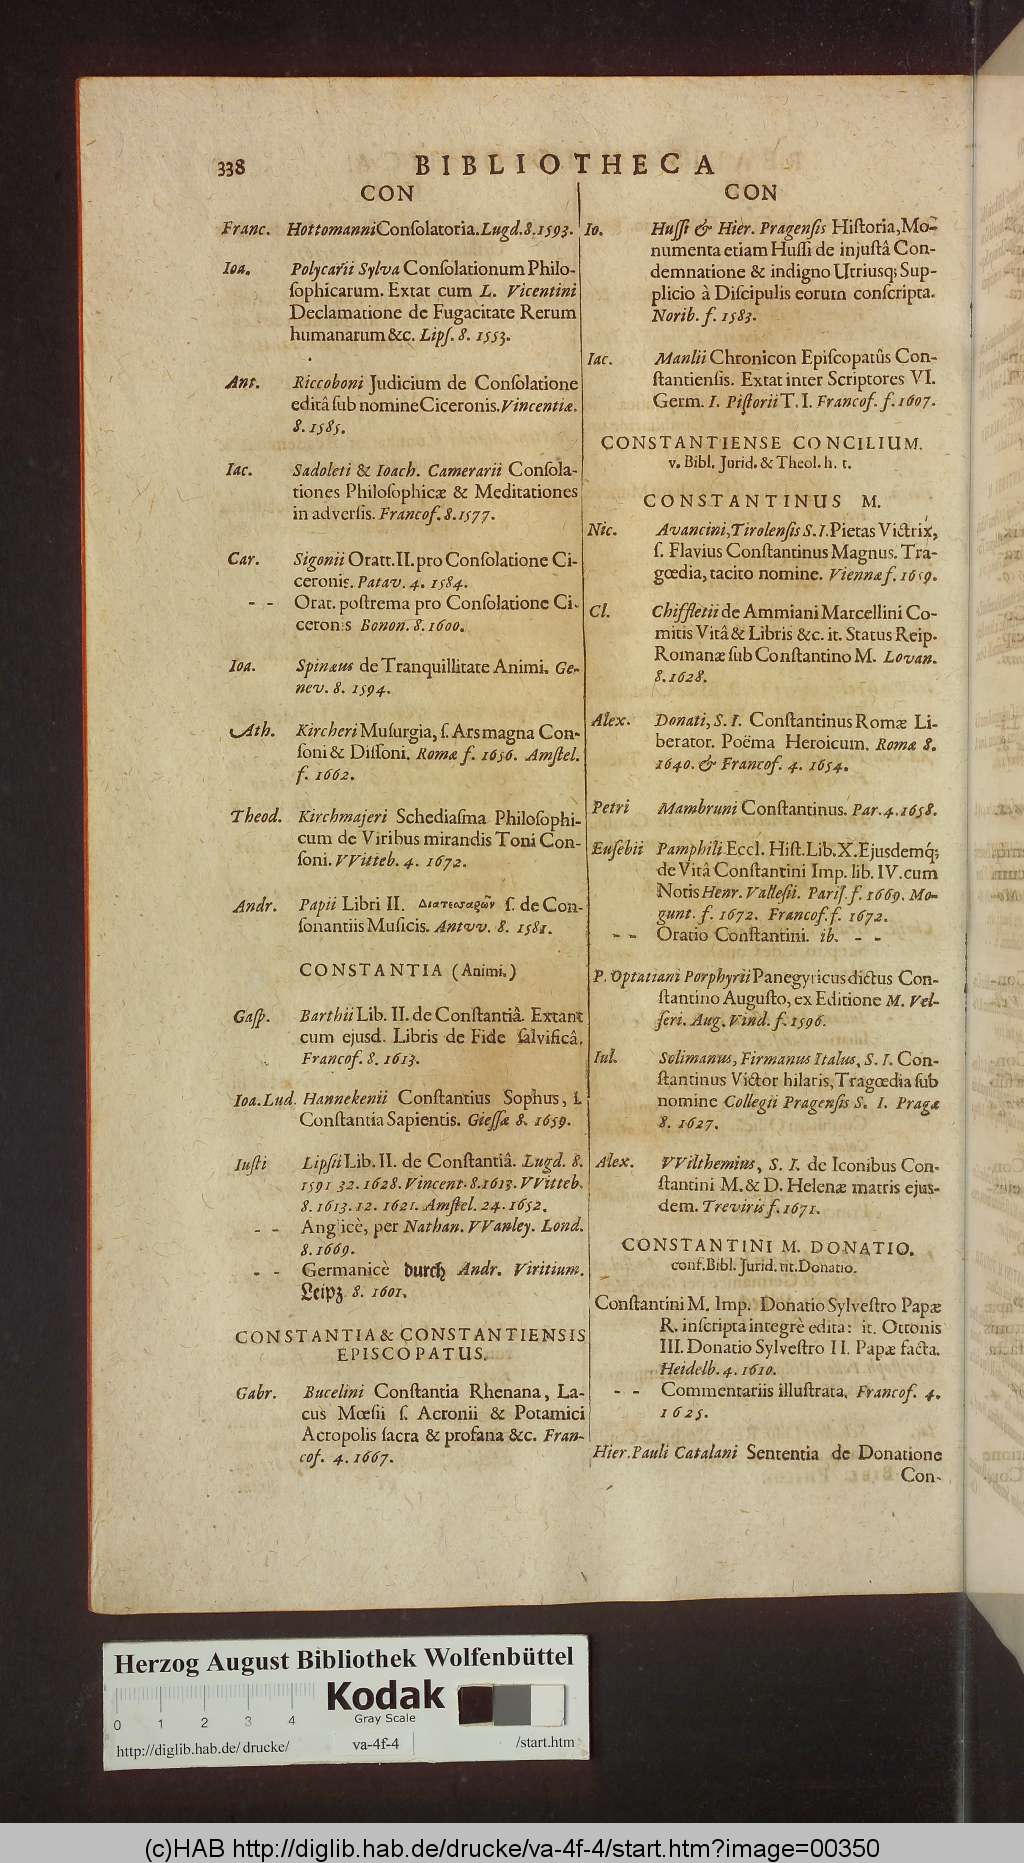 338 BIBLIOTHECA
CON
Franc. Hottomanni Conſolatoria. Lugd. 8. 1593.
Ioa. Polycarii Sylva Conſolationum Philo-
ſophicarum. Extat cum L. Vicentini
Declamatione de Fugacitate Rerum
humanarum &c. Lipſ. 8. 1553.
Ant. Riccoboni Judicium de Conſolatione
editâ ſub nomine Ciceronis. Vincentiæ.
8. 1585.
Iac. Sadoleti & Ioach. Camerarii Conſola-
tiones Philoſophicæ & Meditationes
in adverſis. Francof. 8. 1577.
Car. Sigonii Oratt. II. pro Conſolatione Ci-
ceronis. Patav. 4. 1584.
- - Orat. poſtrema pro Conſolatione Ci-
ceronis Bonon. 8. 1600.
Ioa. Spinæus de Tranquillitate Animi. Ge-
nev. 8. 1594.
Ath. Kircheri Muſurgia, ſ. Ars magna Con-
ſoni & Diſſoni. Romæ f. 1656. Amſtel.
f. 1662.
Theod. Kirchmajeri Schediaſma Philoſophi-
cum de Viribus mirandis Toni Con-
ſoni. VVitteb. 4. 1672.
Andr. Papii Libri II. Διατεσσαρῶν ſ. de Con-
ſonantiis Muſicis. Antvv. 8. 1581.
CONSTANTIA (Animi.)
Gaſp. Barthii Lib. II. de Conſtantiâ. Extant
cum ejusd. Libris de Fide ſalvificâ.
Francof. 8. 1613.
Ioa. Lud. Hannekenii Conſtantius Sophus, ſ.
Conſtantia Sapientis. Gieſſæ 8. 1659.
Iuſti Lipſii Lib. II. de Conſtantiâ. Lugd. 8.
1591 32. 1628. Vincent. 8. 1613. VVitteb.
8. 1613. 12. 1621. Amſtel. 24. 1652.
- - Anglicè, per Nathan. VVanley. Lond.
8. 1669.
- - Germanicè durch Andr. Viritium.
Leipz. 8. 1601.
CONSTANTIA & CONSTANTIENSIS
EPISCOPATUS.
Gabr. Bucelini Conſtantia Rhenana, La-
cus Mœſii ſ. Acronii & Potamici
Acropolis ſacra & profana &c. Fran-
cof. 4. 1667.
CON
Io. Huſſi & Hier. Pragenſis Hiſtoria, Mo-
numenta etiam Huſſi de injuſtâ Con-
demnatione & indigno Utriusq; Sup-
plicio à Diſcipulis eorum conſcripta.
Norib. f. 1583.
Iac. Manlii Chronicon Epiſcopatûs Con-
ſtantienſis. Extat inter Scriptores VI.
Germ. I. Piſtorii T. I. Francof. f. 1607.
CONSTANTIENSE CONCILIUM.
v. Bibl. Jurid. & Theol. h. t.
CONSTANTINUS M.
Nic. Avancini, Tirolenſis S. I. Pietas Victrix,
ſ. Flavius Conſtantinus Magnus. Tra-
gœdia, tacito nomine. Viennæ f. 1659.
Cl. Chiffletii de Ammiani Marcellini Co-
mitis Vitâ & Libris &c. it. Status Reip.
Romanæ ſub Conſtantino M. Lovan.
8. 1628.
Alex. Donati, S. I. Conſtantinus Romæ Li-
berator. Poëma Heroicum. Romæ 8.
1640. & Francof. 4. 1654.
Petri Mambruni Conſtantinus. Par. 4. 1658.
Euſebii Pamphili Eccl. Hiſt. Lib. X. Ejusdemq́;
de Vitâ Conſtantini Imp. lib. IV. cum
Notis Henr. Valleſii. Pariſ. f. 1669. Mo-
gunt. f. 1672. Francof. f. 1672.
- - Oratio Conſtantini. ib. - -
P. Optatiani Porphyrii Panegyricus dictus Con-
ſtantino Auguſto, ex Editione M. Vel-
ſeri. Aug. Vind. f. 1596.
Iul. Solimanus, Firmanus Italus, S. I. Con-
ſtantinus Victor hilaris, Tragœdia ſub
nomine Collegii Pragenſis S. I. Pragæ
8. 1627.
Alex. VVilthemius, S. I. de Iconibus Con-
ſtantini M. & D. Helenæ matris ejus-
dem. Treviris f. 1671.
CONSTANTINI M. DONATIO.
conf. Bibl. Jurid. tit. Donatio.
Conſtantini M. Imp. Donatio Sylveſtro Papæ
R. inſcripta integrè edita: it. Ottonis
III. Donatio Sylveſtro II. Papæ facta.
Heidelb. 4. 1610.
- - Commentariis illuſtrata. Francof. 4.
1625.
Hier. Pauli Catalani Sententia de Donatione
Con-
Herzog August Bibliothek Wolfenbüttel
Kodak
Gray Scale
0 1 2 3 4
http://diglib.hab.de/drucke/ va-4f-4 /start.htm
(c)HAB http://diglib.hab.de/drucke/va-4f-4/start.htm?image=00350